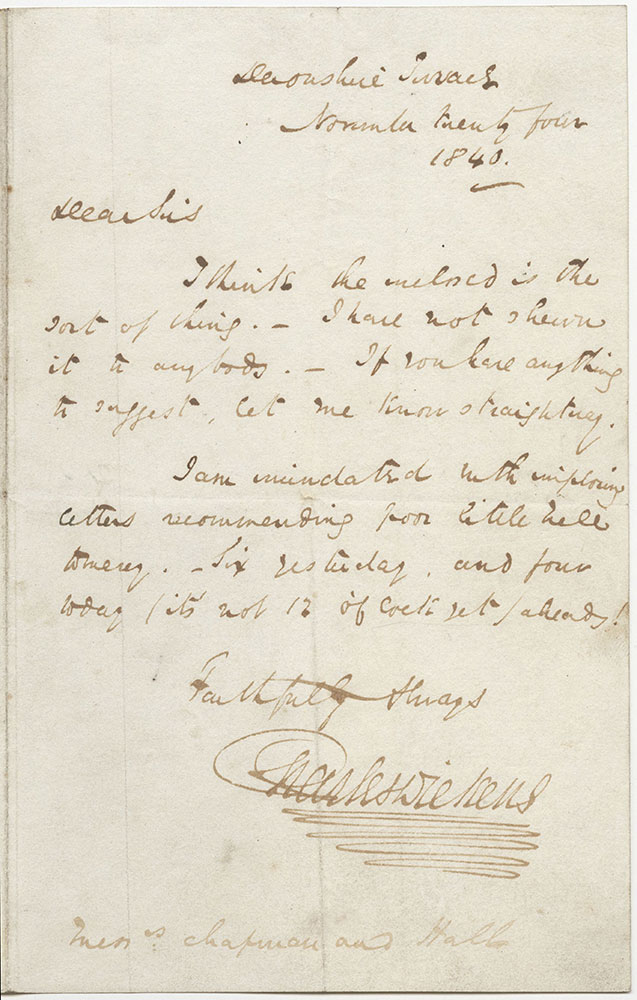 Devonshire Terrace
November twenty four
1840.
Dear Sirs
I think the inclosed is the
sort of thing. — I have not shewn
it to anybody. — If you have anything
to suggest, let me know straightway.
I am inundated with imploring
letters recommending poor little Nell
to mercy. — Six yesterday, and four
today (it's not 12 o'Clock yet) already!
Faithfully Always
Charles Dickens
Messrs Chapman and Hall